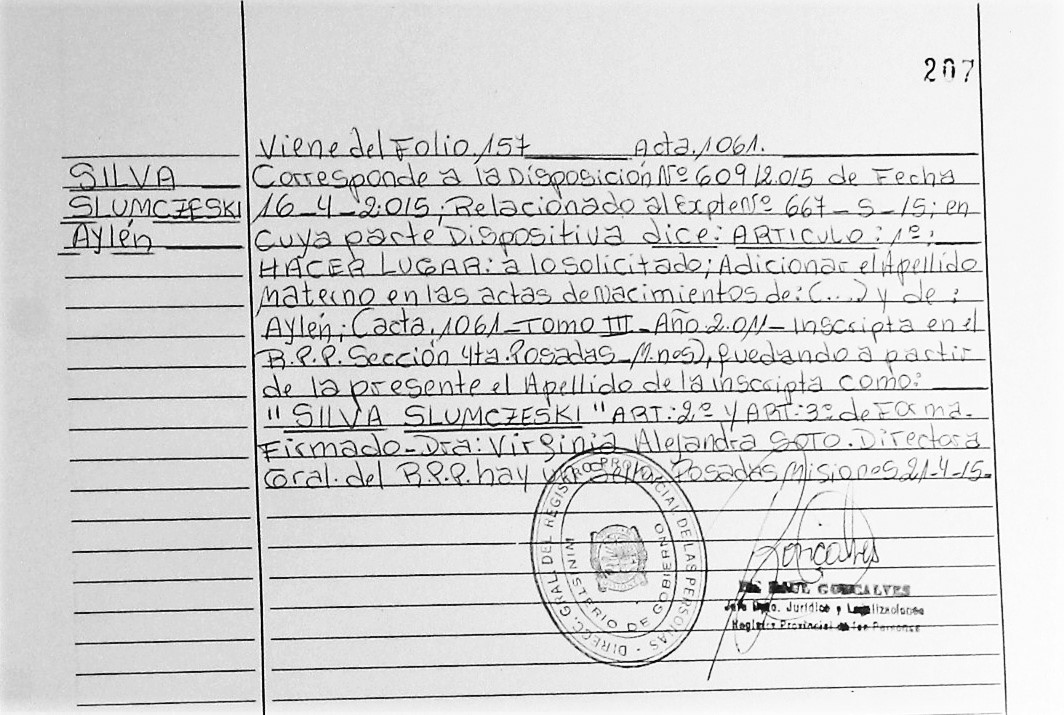 207
Viene del Folio.157 Acta.1061.
SILVA
SLUMCZESKI
Aylén
Corresponde a la Disposición Nº 609/2.015 de Fecha
16-4-2.015; Relacionado al Expte Nº 667-S-15; en
cuya parte Dispositiva dice: ARTICULO: 1º:
HACER LUGAR: a lo solicitado; Adicionar el Apellido
Materno en las actas de Nacimientos de: (...) y de:
Aylén; (acta.1061-Tomo III-Año 2.011-Inscripta en el
R.P.P. Sección 4ta.Posadas-M.nes), quedando a partir
de la presente el Apellido de la inscripta como:
"SILVA SLUMCZESKI" ART:2º Y ART:3º de Forma.
Firmado-Dra: Virginia Alejandra SOTO. Directora
Gral. del R.P.P. hay un Sello Posadas Misiones 21-4-15.
DIRECC. GRAL DEL REGISTRO PROVINCIAL DE LAS PERSONAS
MINISTERIO DE GOBIERNO
Gonçalves
RAUL GONCALVES
Jefe Dpto. Jurídico y Legalizaciones
Registro Provincial de las Personas